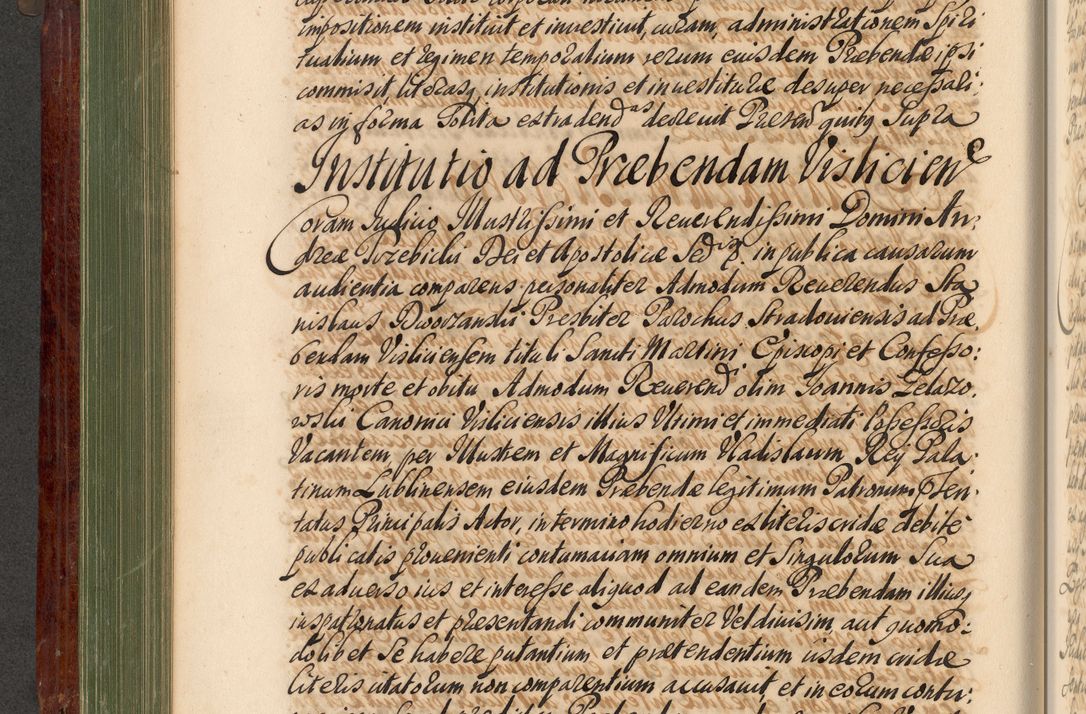 impositionem instituit et investiuit, curam, administrationem Spiri
tualium et regimen temporalium rerum eiusdem Præbendæ ipsi
commisit, literasq institutionis et investituræ desuper necessari:
as in forma solita extradend as decreuit Presen quibq Supra
Institutio ad Præbendam Visliciens
Coram Judicio Illustrissimi et Reuerendissimi Domini An:
dreæ Trzebicki Dei et Apostolicæ Sedis in publica causarum
audientia comparens personaliter Admodum Reuerendus Sta
nislaus Dworzanski Presbiter Parochus Stradouiensis ad Præ
bendam Visliciensem tituli Sancti Martini Episcopi et Confesso:
ris morte et obitu Admodum Reuerend olim Joannis Zelazo,
wski Canonici Visliciensis illius Ultimi et immediati Possessoris
Vacantem per Illustrem et Magnificum Vladislaum Rey Pala:
tinum Lublinensem eiusdem Præbendæ legitimum Patronum Præsen:
tatus Principalis Actor, in termino hodierno ex literis cridæ debite
publicatis prouenienti contumaciam omnium et Singulorum Sua
ex aduerso ius et interesse aliquod ad eandem Præbendam illius,
iuspatronatus et præsentandi communiter Vel diuisim, aut quomo:
dolibet Se habere putantium et prætendentium iisdem cridæ
literis citatorum non comparentium accusauit, et in eorum contu: